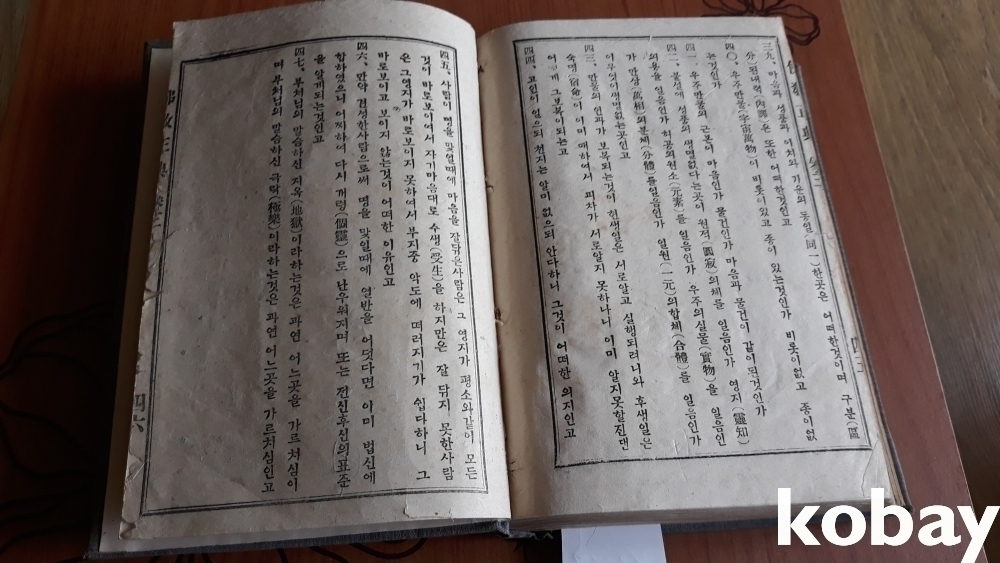 三九、마음과 성품과 이치와 기운의 동일(同一)한곳은 어떠한것이며 구분(區
分)된내역(內譯)은 또한 어떠한것인고
四〇、우주만물(宇宙萬物)이 비롯이있고 종이 있는것인가 비롯이없고 종이없
는것인가
四一、우주만물의 근본이 마음인가 물건인가 마음과 물건이 같이된것인가
四二、불설에 성품의 생멸없다는곳이 원적(圓寂)의체를 일음인가 영지(靈知)
의용을 일음인가 허공의원소(元素)를 일음인가 우주의실물(實物)을 일음인
가 만상(萬相)의분체(分體)를일음인가 일원(一元)의합체(合體)를 일음인가
이무엇이생멸없는곳인고
四三、만물의 인과가 보복되는것이 현생일은 서로알고 실행되려니와 후생일은
숙명(宿命)이 이미 매하여서 피차가 서로알지 못하나니 이미 알지못할진댄
어떻게 그보복이되는고
四四、고인이일으되 천지는 알미 없으되 안다하니 그것이 어떠한 의지인고
四五、사람이 명을 맞일때에 마음을 잘닦은사람은 그 영지가 평소와같이 모든
것이 바로보이여서 자기마음대로 수생(受生)을 하지만은 잘 닦지 못한사람
은 그영지가 바로보이지 못하여서 부지중 악도에 떠러지기가 쉽다하니 그
바로보이고 보이지 않는것이 어떠한 이유인고
四六、만약 견성한사람으로써 명을 맞일때에 열반을 어덧다면 이미 법신에
합하였으니 어찌하여 다시 개령(個靈)으로 난우워지며 또는 전신후신의표준
을 알게되는것인고
四七、부처님의 말슴하신 지옥(地獄)이라하는것은 과연 어느곳을 가르처심이
며 부처님의 말슴하신 극락(極樂)이라하는것은 과연 어느곳을 가르처심인고
四六
kobay